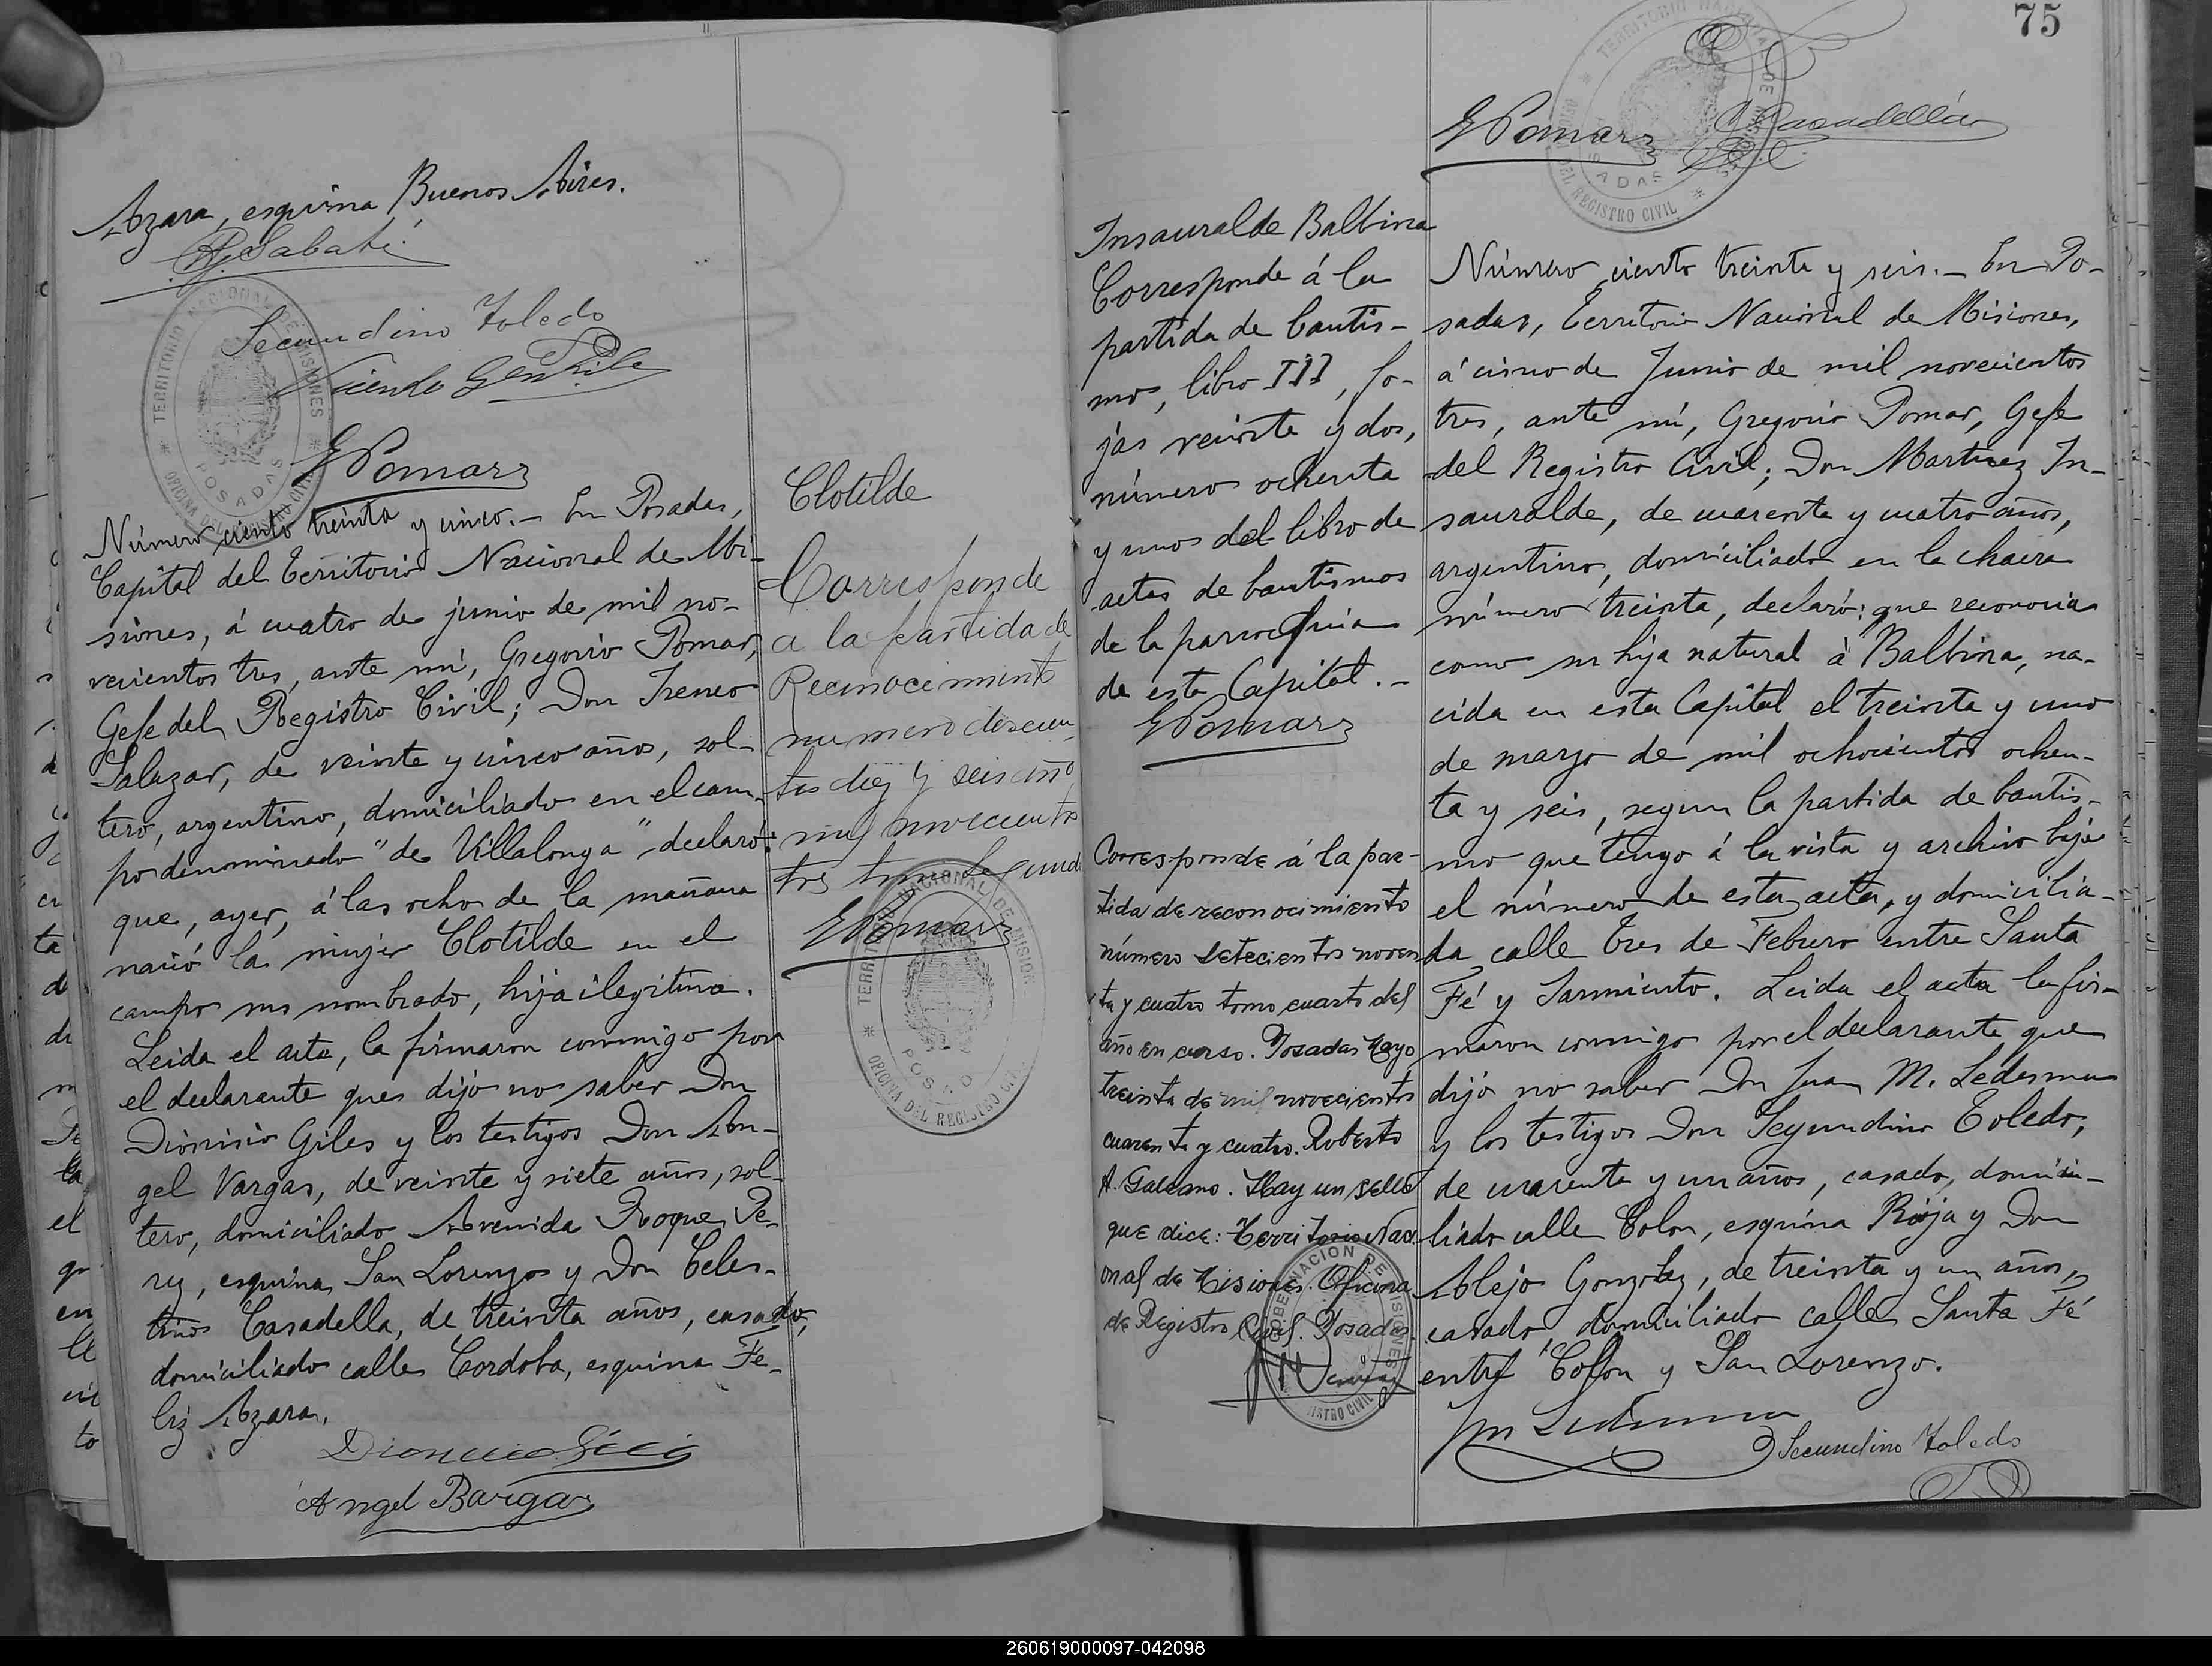 Azara, esquina Buenos Aires.
R. Sabaté
Secundino Toledo
Vicente Gentile
GPomar
Número ciento treinta y cinco.- En Posadas,
Capital del Territorio Nacional de Mi-
siones, á cuatro de junio de mil no-
vecientos tres, ante mí, Gregorio Pomar,
Gefe del Registro Civil; Don Ireneo
Salazar, de veinte y cinco años, sol-
tero, argentino, domiciliado en el cam-
po denominado "de Villalonga" declaró:
que, ayer, á las ocho de la mañana
nació la mujer Clotilde en el
campo ms nombrado, hija ilegitima.
Leida el acta, la firmaron conmigo por
el declarante que dijo no saber Don
Dionisio Giles y los testigos Don An-
gel Vargas, de veinte y siete años, sol-
tero, domiciliado Avenida Roque Pe-
rez, esquina San Lorenzo y Don Celes-
tino Casadella, de treinta años, casado,
domiciliado calle Cordoba, esquina Fe-
liz Azara.
Angel Bargas
Clotilde
Corresponde
a la partida de
Reconocimiento
numero doscien
tos diez y seis año
mil novecientos
tres tomo segundo
GPomar
TERRITORIO NACIONAL DE MISIONES
OFICINA DEL REGISTRO CIVIL
POSADAS
75
GPomar
C Casadellá
TERRITORIO NACIONAL DE MISIONES
OFICINA DEL REGISTRO CIVIL
POSADAS
Insauralde Balbina
Corresponde á la
partida de bautis-
mos, libro III, fo-
jas veinte y dos,
número ochenta
y uno del libro de
actas de bautismos
de la parroquia
de esta Capital.-
GPomar
Corresponde á la par-
tida de reconocimiento
número setecientos noven
ta y cuatro tomo cuarto del
año en curso. Posadas Mayo
treinta de mil novecientos
cuarenta y cuatro. Roberto
A. Galeano. Hay un sello
que dice: Territorio Naci
onal de Misiones. Oficina
de Registro Civil. Posadas.
GOBERNACION DE MISIONES
REGISTRO CIVIL
Número ciento treinta y seis.- En Po-
sadas, Territorio Nacional de Misiones,
á cinco de Junio de mil novecientos
tres, ante mí, Gregorio Pomar, Gefe
del Registro Civil; Don Martinez In-
sauralde, de cuarenta y cuatro años,
argentino, domiciliado en la chacra
número treinta, declaró: que reconocia
como su hija natural á Balbina, na-
cida en esta Capital el treinta y uno
de marzo de mil ochocientos ochen-
ta y seis, segun la partida de bautis-
mo que tengo á la vista y archivo bajo
el número de esta acta, y domicilia-
da calle Tres de Febrero entre Santa
Fé y Sarmiento. Leida el acta la fir-
maron conmigo por el declarante que
dijo no saber Don Juan M. Ledesma
y los testigos Don Segundino Toledo,
de cuarenta y un años, casado, domici-
liado calle Colon, esquina Rioja y Don
Alejo Gonzalez, de treinta y un años,
casado, domiciliado calle Santa Fé
entre Colon y San Lorenzo.
Jn Ledesma
Secundino Toledo
260619000097-042098